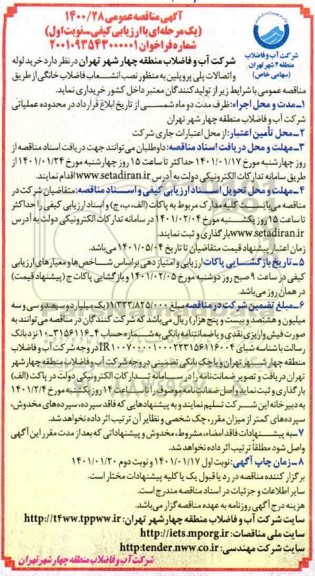 آگهی مناقصه عمومی ۱۴۰۰/۲۸
(یک مرحله‌ای با ارزیابی کیفی-نوبت اول)
شماره فراخوان ۲۰۰۱۰۹۳۵۴۳۰۰۰۰۰۱
شرکت آب و فاضلاب
منطقه ۴ شهر تهران
(سهامی خاص)
شرکت آب و فاضلاب منطقه چهار شهر تهران در نظر دارد خرید لوله
و اتصالات پلی پروپلین به منظور نصب انشعاب فاضلاب خانگی از طریق
مناقصه عمومی با شرایط زیر از تولیدکنندگان معتبر داخل کشور خریداری نماید.
۱-مدت و محل اجراء: ظرف مدت دو ماه شمسی از تاریخ ابلاغ قرارداد در محدوده عملیاتی
شرکت آب و فاضلاب منطقه چهار شهر تهران
۲-محل تأمین اعتبار: از محل اعتبارات جاری شرکت
۳-مهلت و محل دریافت اسناد مناقصه: داوطلبان می‌توانند جهت دریافت اسناد مناقصه از
روز چهارشنبه مورخ ۱۴۰۱/۰۱/۱۷ حداکثر تا ساعت ۱۵ روز چهارشنبه مورخ ۱۴۰۱/۰۱/۲۴ از
طریق سامانه تدارکات الکترونیکی دولت به آدرس www.setadiran.ir اقدام نمایند.
۴-مهلت و محل تحویل اسناد ارزیابی کیفی و اسناد مناقصه: متقاضیان شرکت در
مناقصه می‌بایست کلیه مدارک مربوط به پاکات (الف، ب، ج) و اسناد ارزیابی کیفی را حداکثر
تا ساعت ۱۵ روز یکشنبه مورخ ۱۴۰۱/۰۲/۰۴ در سامانه تدارکات الکترونیکی دولت به آدرس
www.setadiran.ir بارگذاری و ثبت نمایند.
زمان اعتبار پیشنهاد قیمت متقاضیان تا تاریخ ۱۴۰۱/۰۵/۰۴ می‌باشد.
۵-تاریخ بازگشایی پاکات: ارزیابی و امتیازدهی براساس شاخص‌ها و معیارهای ارزیابی
کیفی در ساعت ۹ صبح روز دوشنبه مورخ ۱۴۰۱/۰۲/۰۵ و بازگشایی پاکات ج (پیشنهاد قیمت)
در همان روز می‌باشد.
۶-مبلغ تضمین شرکت در مناقصه: مبلغ ۱/۲۳۳/۸۲۵/۰۰۰ (یک میلیارد و دویست و سی و سه
میلیون و هشتصد و بیست و پنج هزار) ریال می‌باشد که شرکت کنندگان در مناقصه می‌توانند به
صورت فیش واریزی نقدی و یا ضمانتنامه بانکی به شماره حساب نزد بانک
رسالت با شناسه شبای در وجه شرکت آب و فاضلاب
منطقه چهار شهر تهران و یا چک بانکی تضمینی در وجه شرکت آب و فاضلاب منطقه چهار شهر
تهران دریافت و تصویر ضمانتنامه را در سامانه تدارکات الکترونیکی دولت در پاکت (الف)
بارگذاری و ثبت نمایند. اصل ضمانتنامه موصوف را تا ساعت ۱۴ روز یکشنبه مورخ ۱۴۰۱/۲/۴
به دبیرخانه این شرکت تسلیم نمایند و به پیشنهادهایی که فاقد سپرده، سپرده‌های مخدوش،
سپرده‌های کمتر از میزان مقرر، چک شخصی و نظایر آن ترتیب اثر داده نخواهد شد.
۷-به پیشنهادات فاقد امضاء، مشروط، مخدوش و پیشنهاداتی که بعد از مدت مقرر این آگهی
واصل شود مطلقاً ترتیب اثر داده نخواهد شد.
۸-زمان چاپ آگهی: نوبت اول ۱۴۰۱/۰۱/۱۷ و نوبت دوم ۱۴۰۱/۰۱/۲۰
برگزار کننده مناقصه در رد یا قبول یک یا کلیه پیشنهادات مختار است.
سایر اطلاعات و جزئیات در اسناد مناقصه مندرج است.
هزینه درج آگهی روزنامه به عهده مناقصه گزار می‌باشد.
سایت شرکت آب و فاضلاب منطقه چهار شهر تهران: http://t4ww.tppww.ir
سایت ملی مناقصات: http://iets.mporg.ir
سایت شرکت مهندسی: http:tender.nww.co.ir
شرکت آب و فاضلاب منطقه چهار شهر تهران